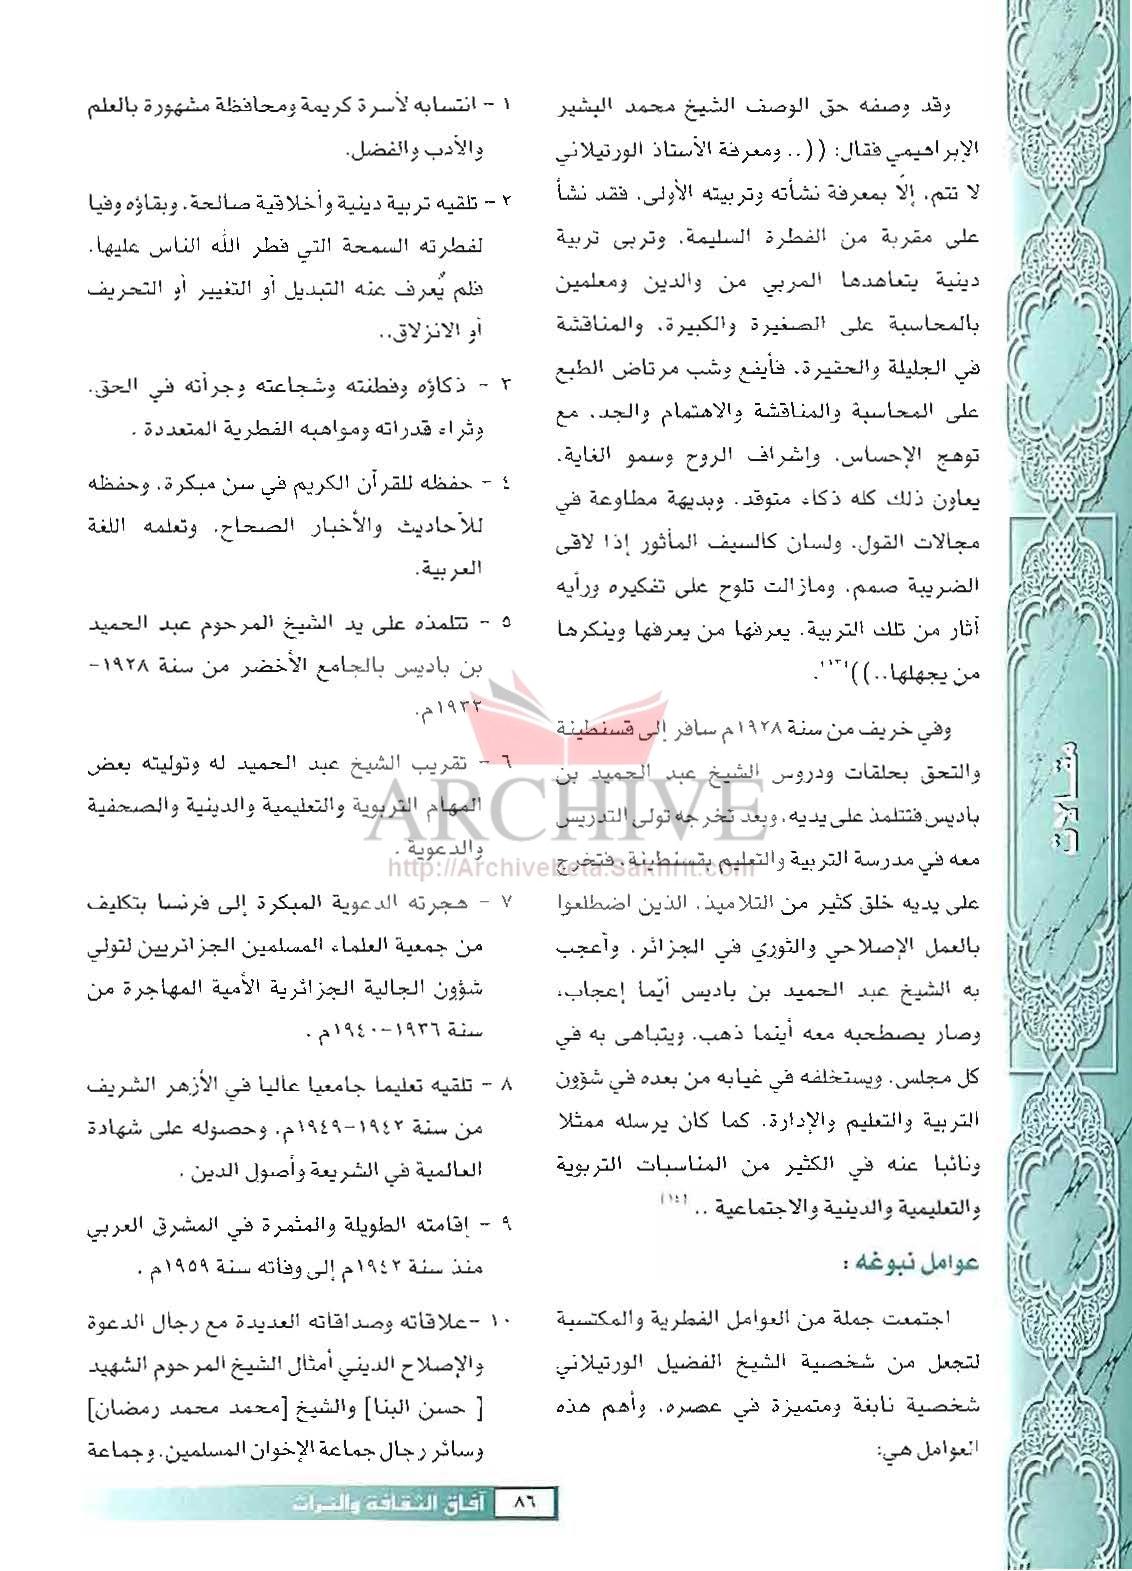 وقد وصفه حق الوصف الشيخ محمد البشير
الإبراهيمي فقال: ((.. ومعرفة الأستاذ الورتيلاني
لا تتم، إلاّ بمعرفة نشأته وتربيته الأولى، فقد نشأ
على مقربة من الفطرة السليمة، وتربى تربية
دينية يتعاهدها المربي من والدين ومعلمين
بالمحاسبة على الصغيرة والكبيرة، والمناقشة
في الجليلة والحقيرة، فأيفع وشب مرتاض الطبع
على المحاسبة والمناقشة والاهتمام والجد، مع
توهج الإحساس، وإشراف الروح وسمو الغاية،
يعاون ذلك كله ذكاء متوقد، وبديهة مطاوعة في
مجالات القول، ولسان كالسيف المأثور إذا لاقى
الضريبة صمم، ومازالت تلوح على تفكيره ورأيه
آثار من تلك التربية، يعرفها من يعرفها وينكرها
من يجهلها..))(١٣).
وفي خريف من سنة ١٩٢٨م سافر إلى قسنطينة
والتحق بحلقات ودروس الشيخ عبد الحميد بن
باديس فتتلمذ على يديه، وبعد تخرجه تولى التدريس
معه في مدرسة التربية والتعليم بقسنطينة، فتخرج
على يديه خلق كثير من التلاميذ، الذين اضطلعوا
بالعمل الإصلاحي والثوري في الجزائر، وأعجب
به الشيخ عبد الحميد بن باديس أيّما إعجاب،
وصار يصطحبه معه أينما ذهب، ويتباهى به في
كل مجلس، ويستخلفه في غيابه من بعده في شؤون
التربية والتعليم والإدارة، كما كان يرسله ممثلا
ونائبا عنه في الكثير من المناسبات التربوية
والتعليمية والدينية والاجتماعية .. (١٤)
عوامل نبوغه :
اجتمعت جملة من العوامل الفطرية والمكتسبة
لتجعل من شخصية الشيخ الفضيل الورتيلاني
شخصية نابغة ومتميزة في عصره، وأهم هذه
العوامل هي:
١ - انتسابه لأسرة كريمة ومحافظة مشهورة بالعلم
والأدب والفضل.
٢ - تلقيه تربية دينية وأخلاقية صالحة، وبقاؤه وفيا
لفطرته السمحة التي فطر الله الناس عليها،
فلم يُعرف عنه التبديل أو التغيير أو التحريف
أو الانزلاق..
٣ - ذكاؤه وفطنته وشجاعته وجرأته في الحق،
وثراء قدراته ومواهبه الفطرية المتعددة .
٤ - حفظه للقرآن الكريم في سن مبكرة، وحفظه
للأحاديث والأخبار الصحاح، وتعلمه اللغة
العربية.
٥ - تتلمذه على يد الشيخ المرحوم عبد الحميد
بن باديس بالجامع الأخضر من سنة ١٩٢٨-
١٩٣٢م.
٦ - تقريب الشيخ عبد الحميد له وتوليته بعض
المهام التربوية والتعليمية والدينية والصحفية
والدعوية .
٧ - هجرته الدعوية المبكرة إلى فرنسا بتكليف
من جمعية العلماء المسلمين الجزائريين لتولي
شؤون الجالية الجزائرية الأمية المهاجرة من
سنة ١٩٣٦-١٩٤٠م .
٨ - تلقيه تعليما جامعيا عاليا في الأزهر الشريف
من سنة ١٩٤٢-١٩٤٩م، وحصوله على شهادة
العالمية في الشريعة وأصول الدين .
٩ - إقامته الطويلة والمثمرة في المشرق العربي
منذ سنة ١٩٤٢م إلى وفاته سنة ١٩٥٩م .
١٠ -علاقاته وصداقاته العديدة مع رجال الدعوة
والإصلاح الديني أمثال الشيخ المرحوم الشهيد
[ حسن البنا] والشيخ [محمد محمد رمضان]
وسائر رجال جماعة الإخوان المسلمين، وجماعة
مقالات
ARCHIVE
http://Archivebeta.Sakhrit.com
٨٦ آفاق الثقافة والتراث